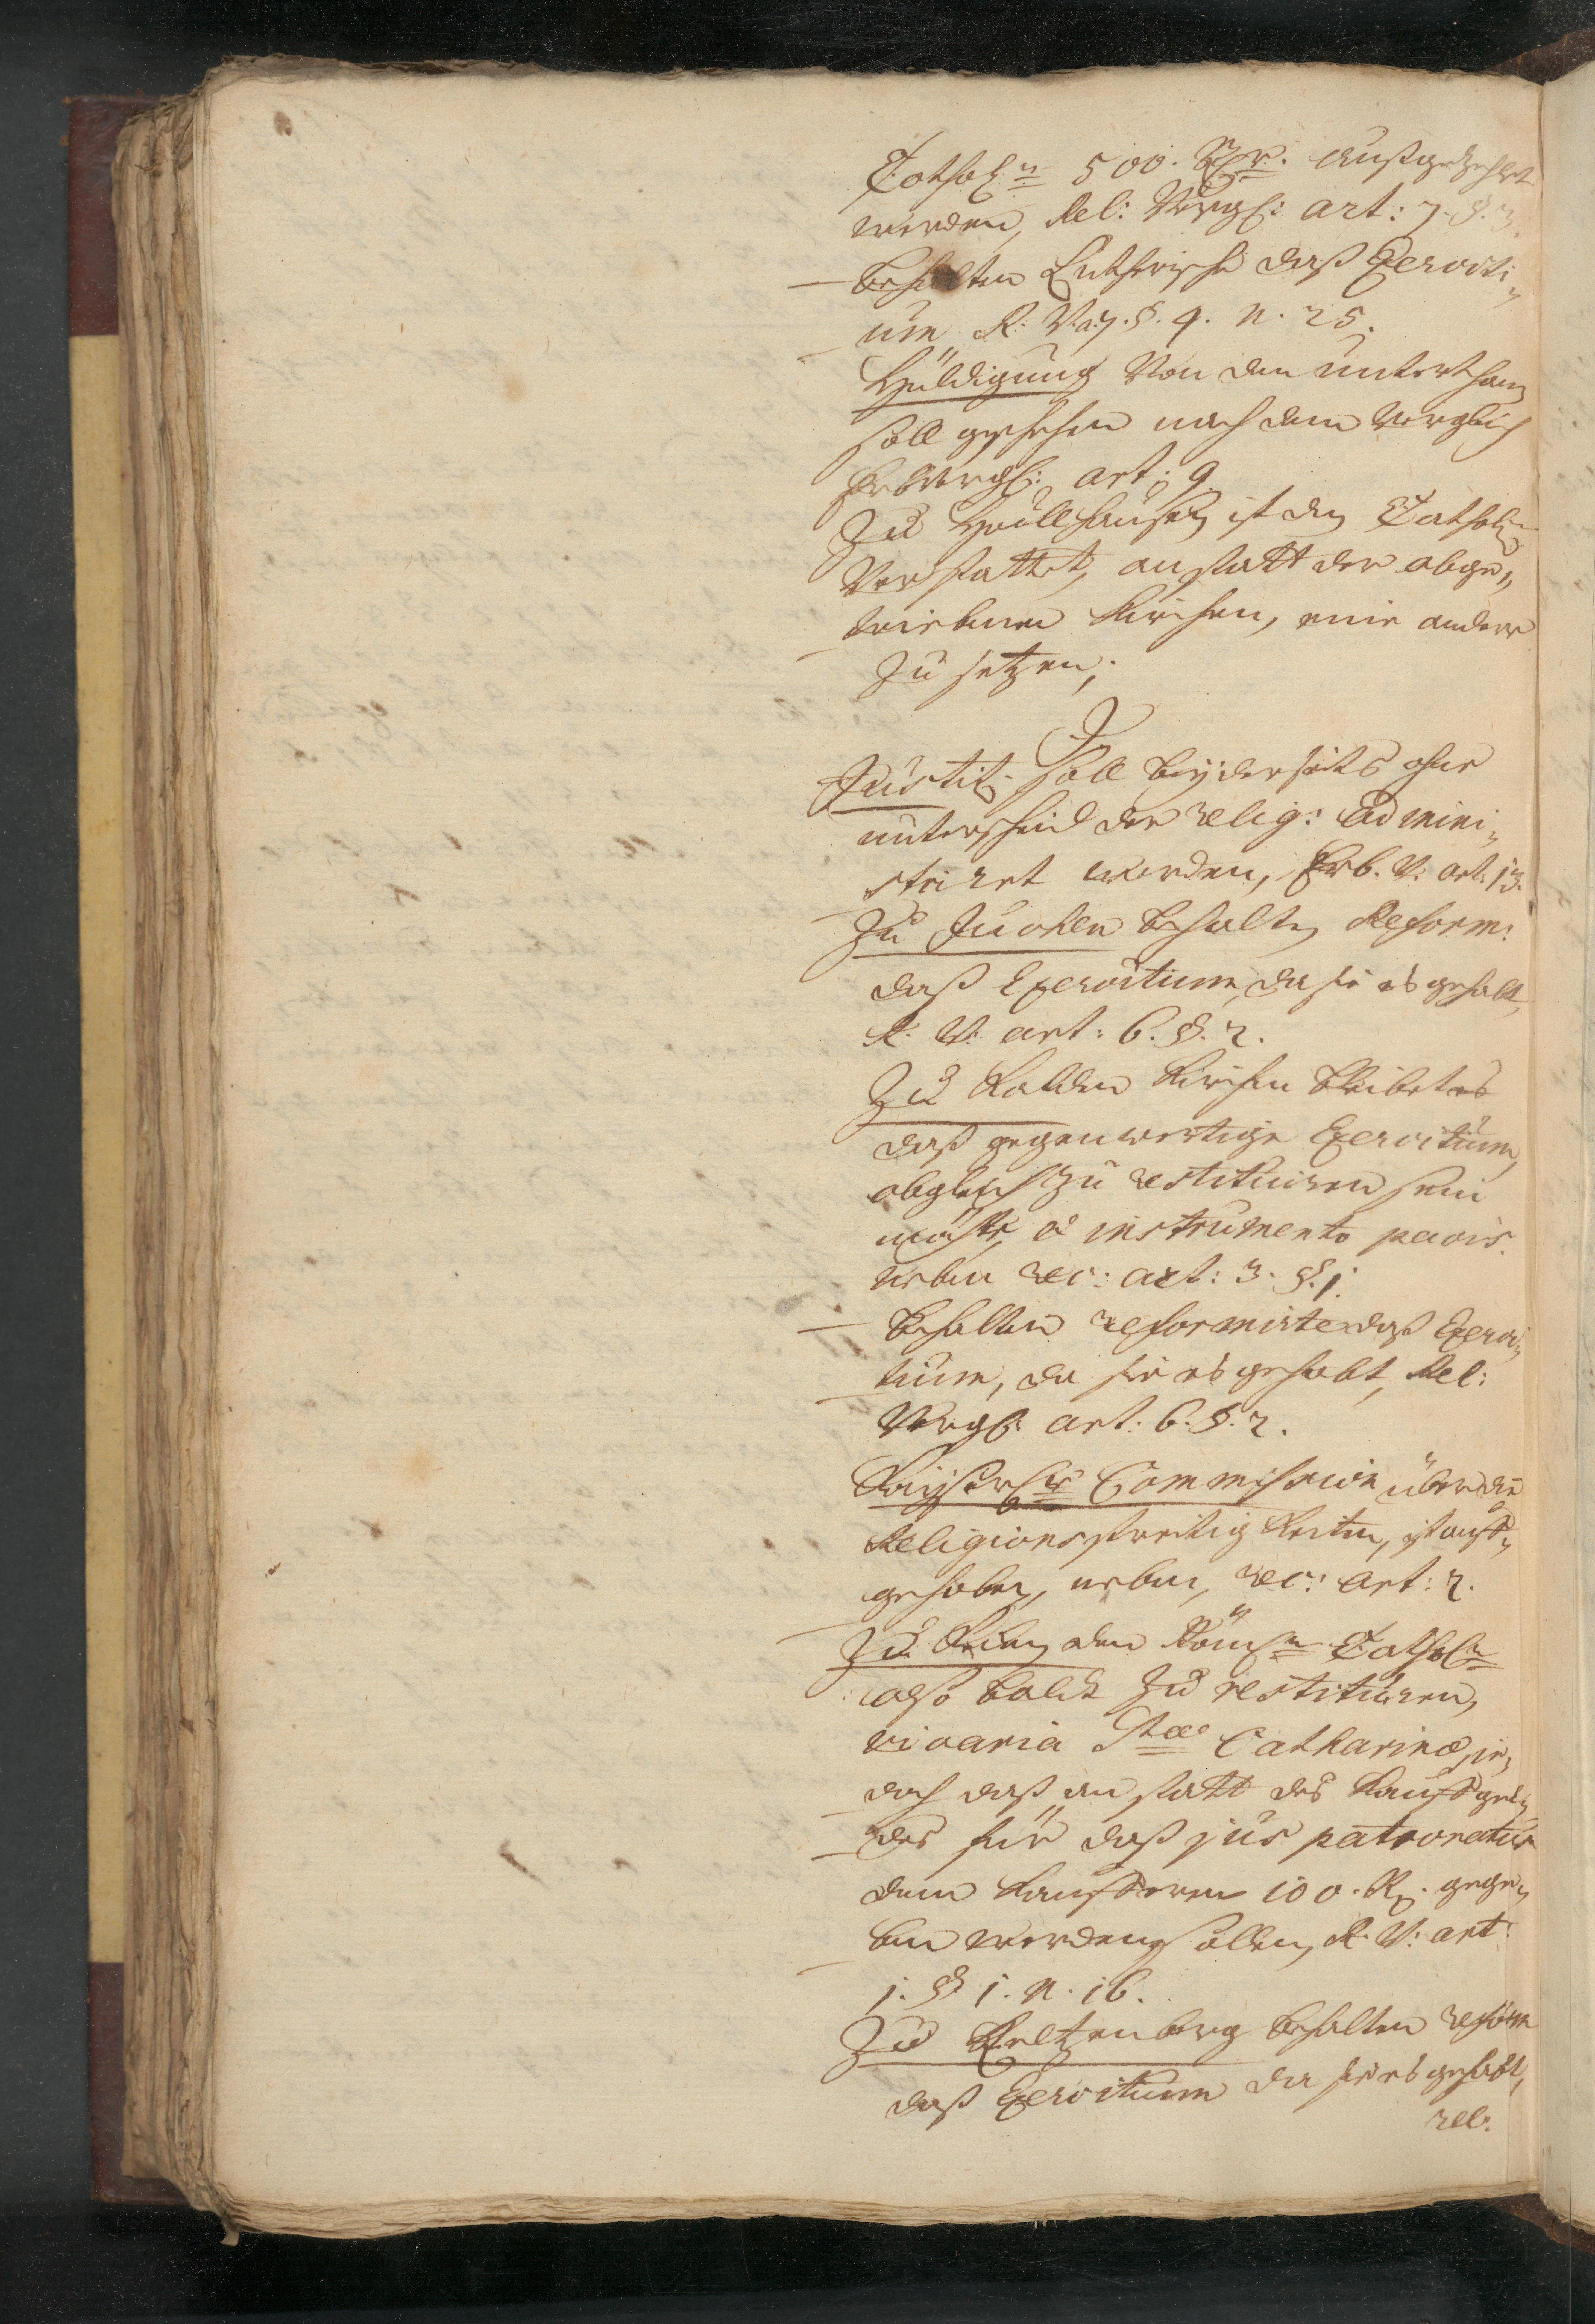 Cathol:n 500. Rthr. außgezehlt
werden, Rel: Vergl: art: 7. §. 3.
behalten Lutherische daß Exerciti„
um R. V. a. 7. §. 4. n. 25.
Huldigung von den unterthan
soll geschehen nach dem Vergleich
Erbvergl: art: 9.
Zu Hüllhausen ist den Catholn
verstattet, anstatt der abge„
triebenen Kirchen, eine andere
zu setzen;
J
Justitz soll beyderseits ohne
unterscheid der relig: admini„
striret werden, Erb. V. art: 13.
Zu Juchen behalten Reform:
daß Exercitium, da sie es gehabt,
R. V. art: 6. §. 2.
Zu Kalden Kirchen bleibet es
daß gegenwertige Exercitium,
obgleich zu restituiren sein
möchte, ex instrumento pacis.
neben rec: art: 3. §. 1.
behalten reformirte daß Exerci„
tium, da sie es gehabt, Rel:
Vergl. art: 6. §. 2.
Kayserliche Commission über die
Religions streitig Keiten, ist auff„
gehoben, neben, rec: art: 2.
Zu den Römn Catholn
also baldt zu restituiren,
vicaria Stae Catharinae, je„
doch daß an statt des Kauffgel„
des für daß jus patronatus
dem Kaufferen 100. R. gege„
ben werden sollen, R. V. art:
1. § 1. n. 16.
Zu Keltzenberg behalten reform
daß Exercitium da sie es gehabt,
rel: